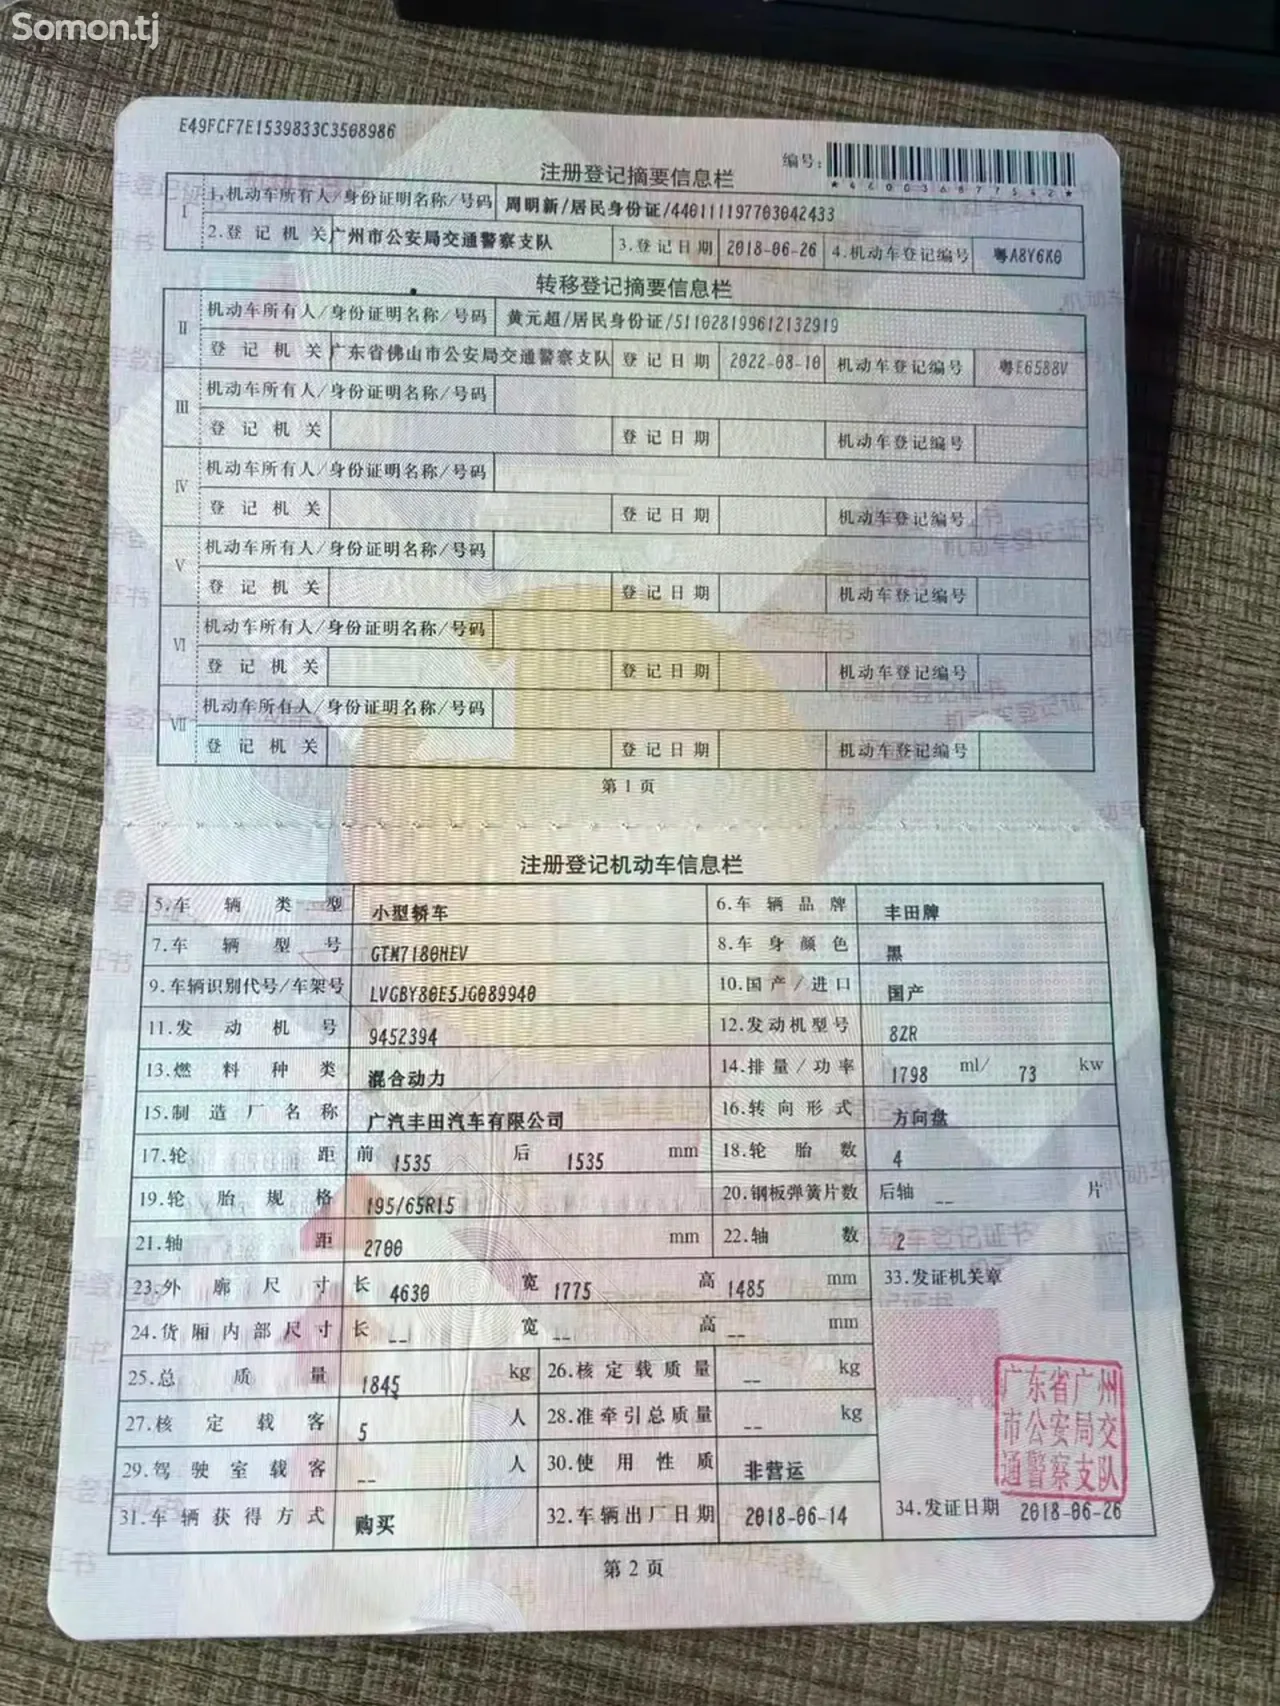 Somon.tj
E49FCF7E1539833C3508986
注册登记摘要信息栏
编号:
*460036877542*
I
1.机动车所有人/身份证明名称/号码 周明新/居民身份证/440111197703042433
2.登记机关 广州市公安局交通警察支队 3.登记日期 2018-06-26 4.机动车登记编号 粤A8Y6K0
转移登记摘要信息栏
II
机动车所有人/身份证明名称/号码 黄元超/居民身份证/511028199612132919
登记机关 广东省佛山市公安局交通警察支队 登记日期 2022-08-10 机动车登记编号 粤E6588V
III
机动车所有人/身份证明名称/号码
登记机关 登记日期 机动车登记编号
IV
机动车所有人/身份证明名称/号码
登记机关 登记日期 机动车登记编号
V
机动车所有人/身份证明名称/号码
登记机关 登记日期 机动车登记编号
VI
机动车所有人/身份证明名称/号码
登记机关 登记日期 机动车登记编号
VII
机动车所有人/身份证明名称/号码
登记机关 登记日期 机动车登记编号
第1页
注册登记机动车信息栏
5.车辆类型 小型轿车 6.车辆品牌 丰田牌
7.车辆型号 GTM7180HEV 8.车身颜色 黑
9.车辆识别代号/车架号 LVGBY80E5JG089940 10.国产/进口 国产
11.发动机号 9452394 12.发动机型号 8ZR
13.燃料种类 混合动力 14.排量/功率 1798 ml/ 73 kw
15.制造厂名称 广汽丰田汽车有限公司 16.转向形式 方向盘
17.轮距 前 1535 后 1535 mm 18.轮胎数 4
19.轮胎规格 195/65R15 20.钢板弹簧片数 后轴 -- 片
21.轴距 2700 mm 22.轴数 2
23.外廓尺寸 长 4630 宽 1775 高 1485 mm 33.发证机关章
24.货厢内部尺寸 长 -- 宽 -- 高 -- mm
25.总质量 1845 kg 26.核定载质量 -- kg
27.核定载客 5 人 28.准牵引总质量 -- kg
29.驾驶室载客 -- 人 30.使用性质 非营运
31.车辆获得方式 购买 32.车辆出厂日期 2018-06-14 34.发证日期 2018-06-26
广东省广州
市公安局交
通警察支队
第2页